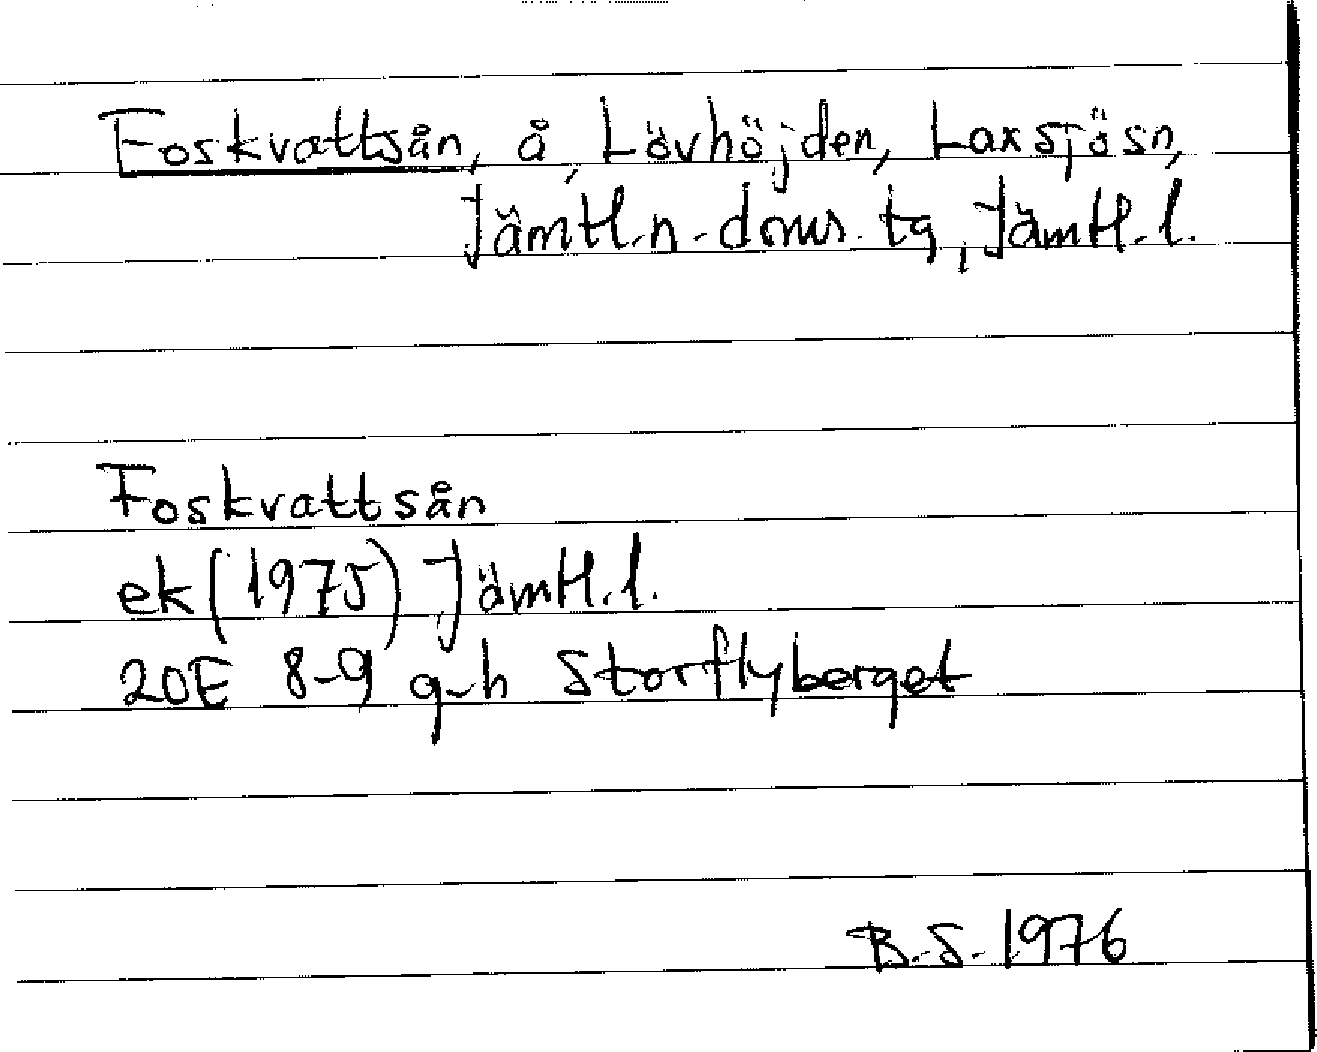 Foskvattsån, å, Lövhöjden, Laxsjö sn,
Jämtl. n. doms. tg, Jämtl. l.
Foskvattsån
ek (1975) Jämtl. l.
20E 8-9 g-h Storflyberget
B. S. 1976